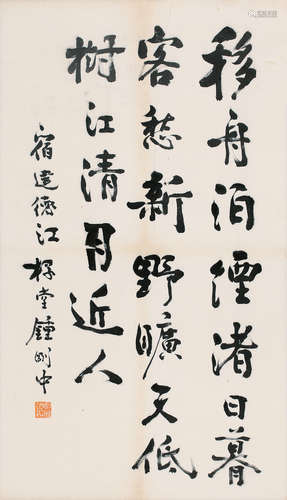 移舟泊煙渚日暮
客愁新野曠天低
樹江清月近人
宿建德江 桴堂鍾剛中